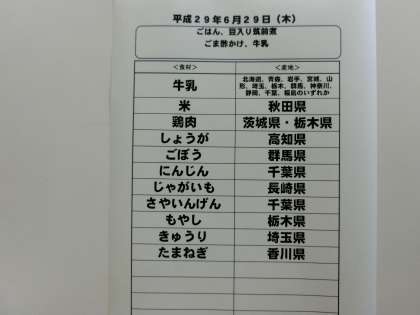 平成29年6月29日（木）
ごはん、豆入り筑前煮
ごま酢かけ、牛乳
＜食材＞ ＜産地＞
牛乳 北海道、青森、岩手、宮城、山
形、埼玉、栃木、群馬、神奈川、
静岡、千葉、福島のいずれか
米 秋田県
鶏肉 茨城県・栃木県
しょうが 高知県
ごぼう 群馬県
にんじん 千葉県
じゃがいも 長崎県
さやいんげん 千葉県
もやし 栃木県
きゅうり 埼玉県
たまねぎ 香川県